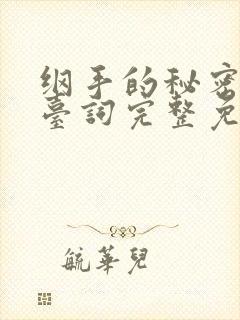 纲手的秘密
臺詞完整免
毓華兒